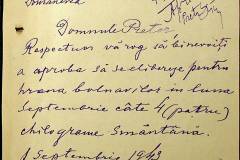 Domnule Pretor
Respectuos vă rog să binevoiți
a aproba să se elibereze pentru
hrana bolnavilor în luna
Septembrie câte 4 (patru)
chilograme smântână.
1 Septembrie 1943